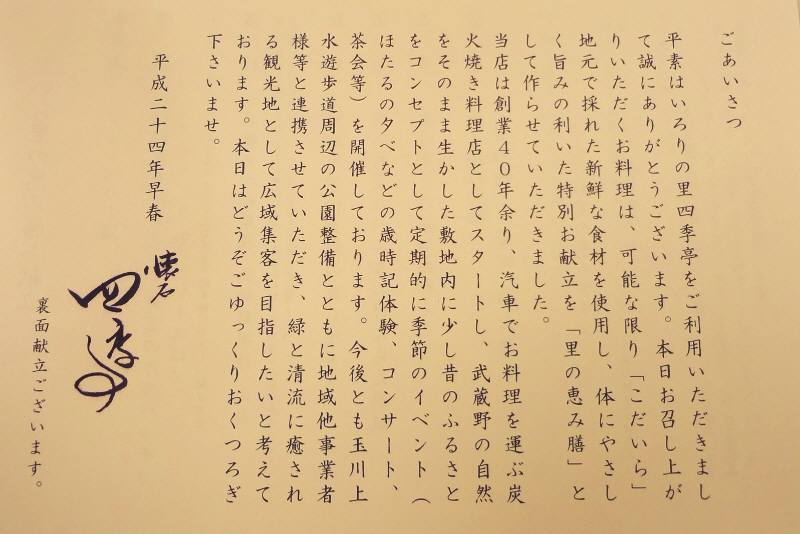 ごあいさつ
平素はいろりの里四季亭をご利用いただきまし
て誠にありがとうございます。本日お召し上が
りいただくお料理は、可能な限り「こだいら」
地元で採れた新鮮な食材を使用し、体にやさし
く旨みの利いた特別お献立を「里の恵み膳」と
して作らせていただきました。
当店は創業４０年余り、汽車でお料理を運ぶ炭
火焼き料理店としてスタートし、武蔵野の自然
をそのまま生かした敷地内に少し昔のふるさと
をコンセプトとして定期的に季節のイベント（
ほたるの夕べなどの歳時記体験、コンサート、
茶会等）を開催しております。今後とも玉川上
水遊歩道周辺の公園整備とともに地域他事業者
様等と連携させていただき、緑と清流に癒され
る観光地として広域集客を目指したいと考えて
おります。本日はどうぞごゆっくりおくつろぎ
下さいませ。
平成二十四年早春
懐石
四季亭
裏面献立ございます。